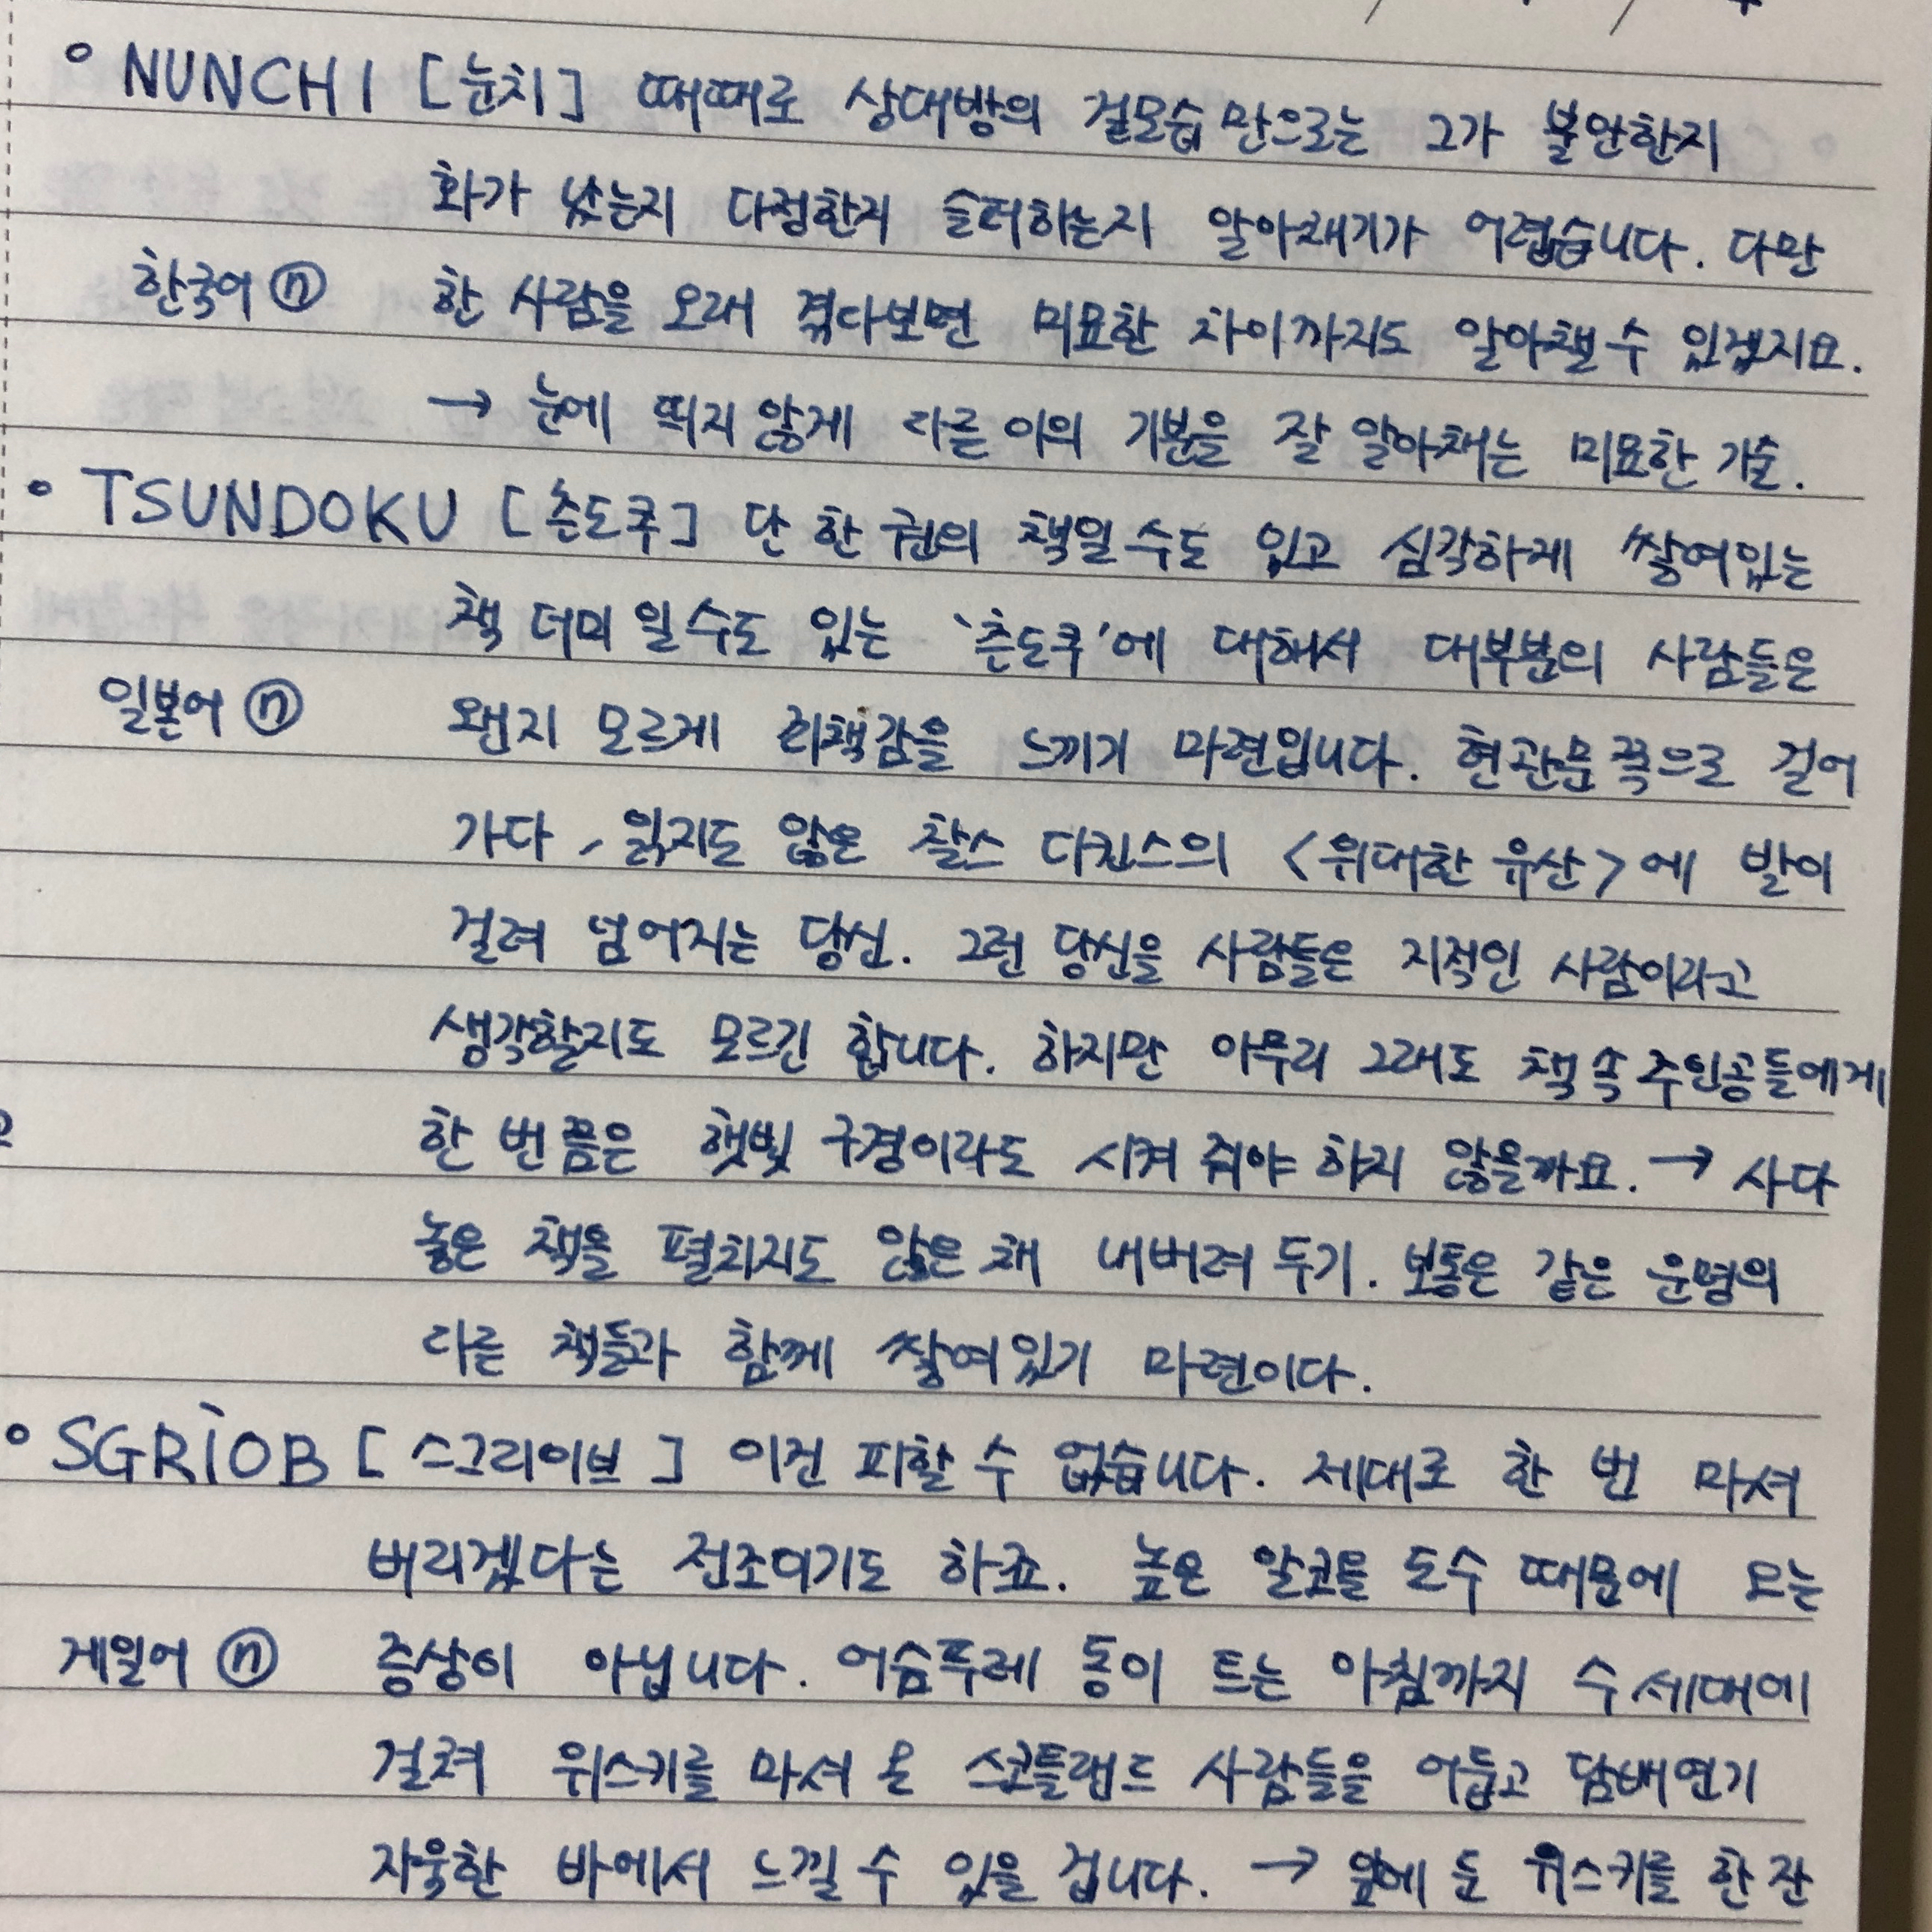 ° NUNCHI [눈치] 때때로 상대방의 겉모습만으로는 그가 불안한지
화가 났는지 다정한지 슬퍼하는지 알아채기가 어렵습니다. 다만
한국어 ⓝ 한 사람을 오래 겪다보면 미묘한 차이까지도 알아챌 수 있겠지요.
→ 눈에 띄지 않게 다른 이의 기분을 잘 알아채는 미묘한 기술.
° TSUNDOKU [츤도쿠] 단 한 권의 책일 수도 있고 심각하게 쌓여있는
책 더미 일 수도 있는 '츤도쿠'에 대해서 대부분의 사람들은
일본어 ⓝ 왠지 모르게 죄책감을 느끼기 마련입니다. 현관문 쪽으로 걸어
가다, 읽지도 않은 찰스 디킨스의 <위대한 유산>에 발이
걸려 넘어지는 당신. 그런 당신을 사람들은 지적인 사람이라고
생각할지도 모르긴 합니다. 하지만 아무리 그래도 책 속 주인공들에게
한 번 쯤은 햇빛 구경이라도 시켜 줘야 하지 않을까요. → 사다
놓은 책을 펼치지도 않은 채 내버려 두기. 보통은 같은 운명의
다른 책들과 함께 쌓여있기 마련이다.
° SGRÌOB [스그리이브] 이건 피할 수 없습니다. 제대로 한 번 마셔
버리겠다는 전조이기도 하죠. 높은 알코올 도수 때문에 오는
게일어 ⓝ 증상이 아닙니다. 어슴푸레 동이 트는 아침까지 수 세대에
걸쳐 위스키를 마셔 온 스코틀랜드 사람들을 어둡고 담배연기
자욱한 바에서 느낄 수 있을 겁니다. → 앞에 둔 위스키를 한 잔